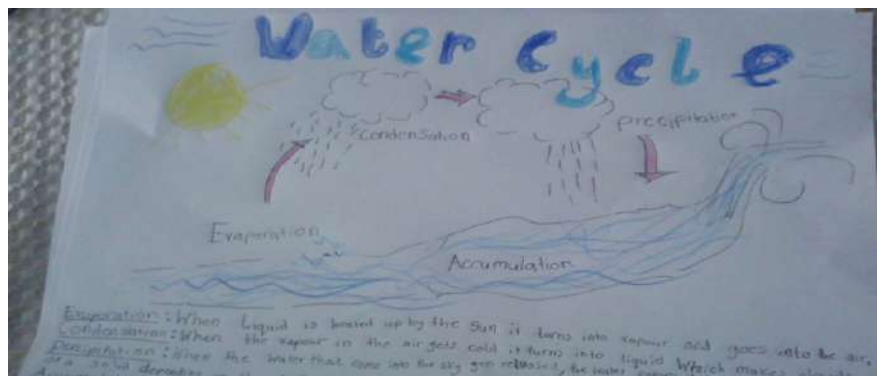 Water Cycle
Condensation
precipitation
Evaporation
Accumulation
Evaporation: When Liquid is heated up by the Sun it turns into vapour and goes into the air.
Condensation: When the vapour in the air gets cold it turns into liquid which makes clouds
Percipitation: When the water that come into the sky get released, the water
or a solid depending on the